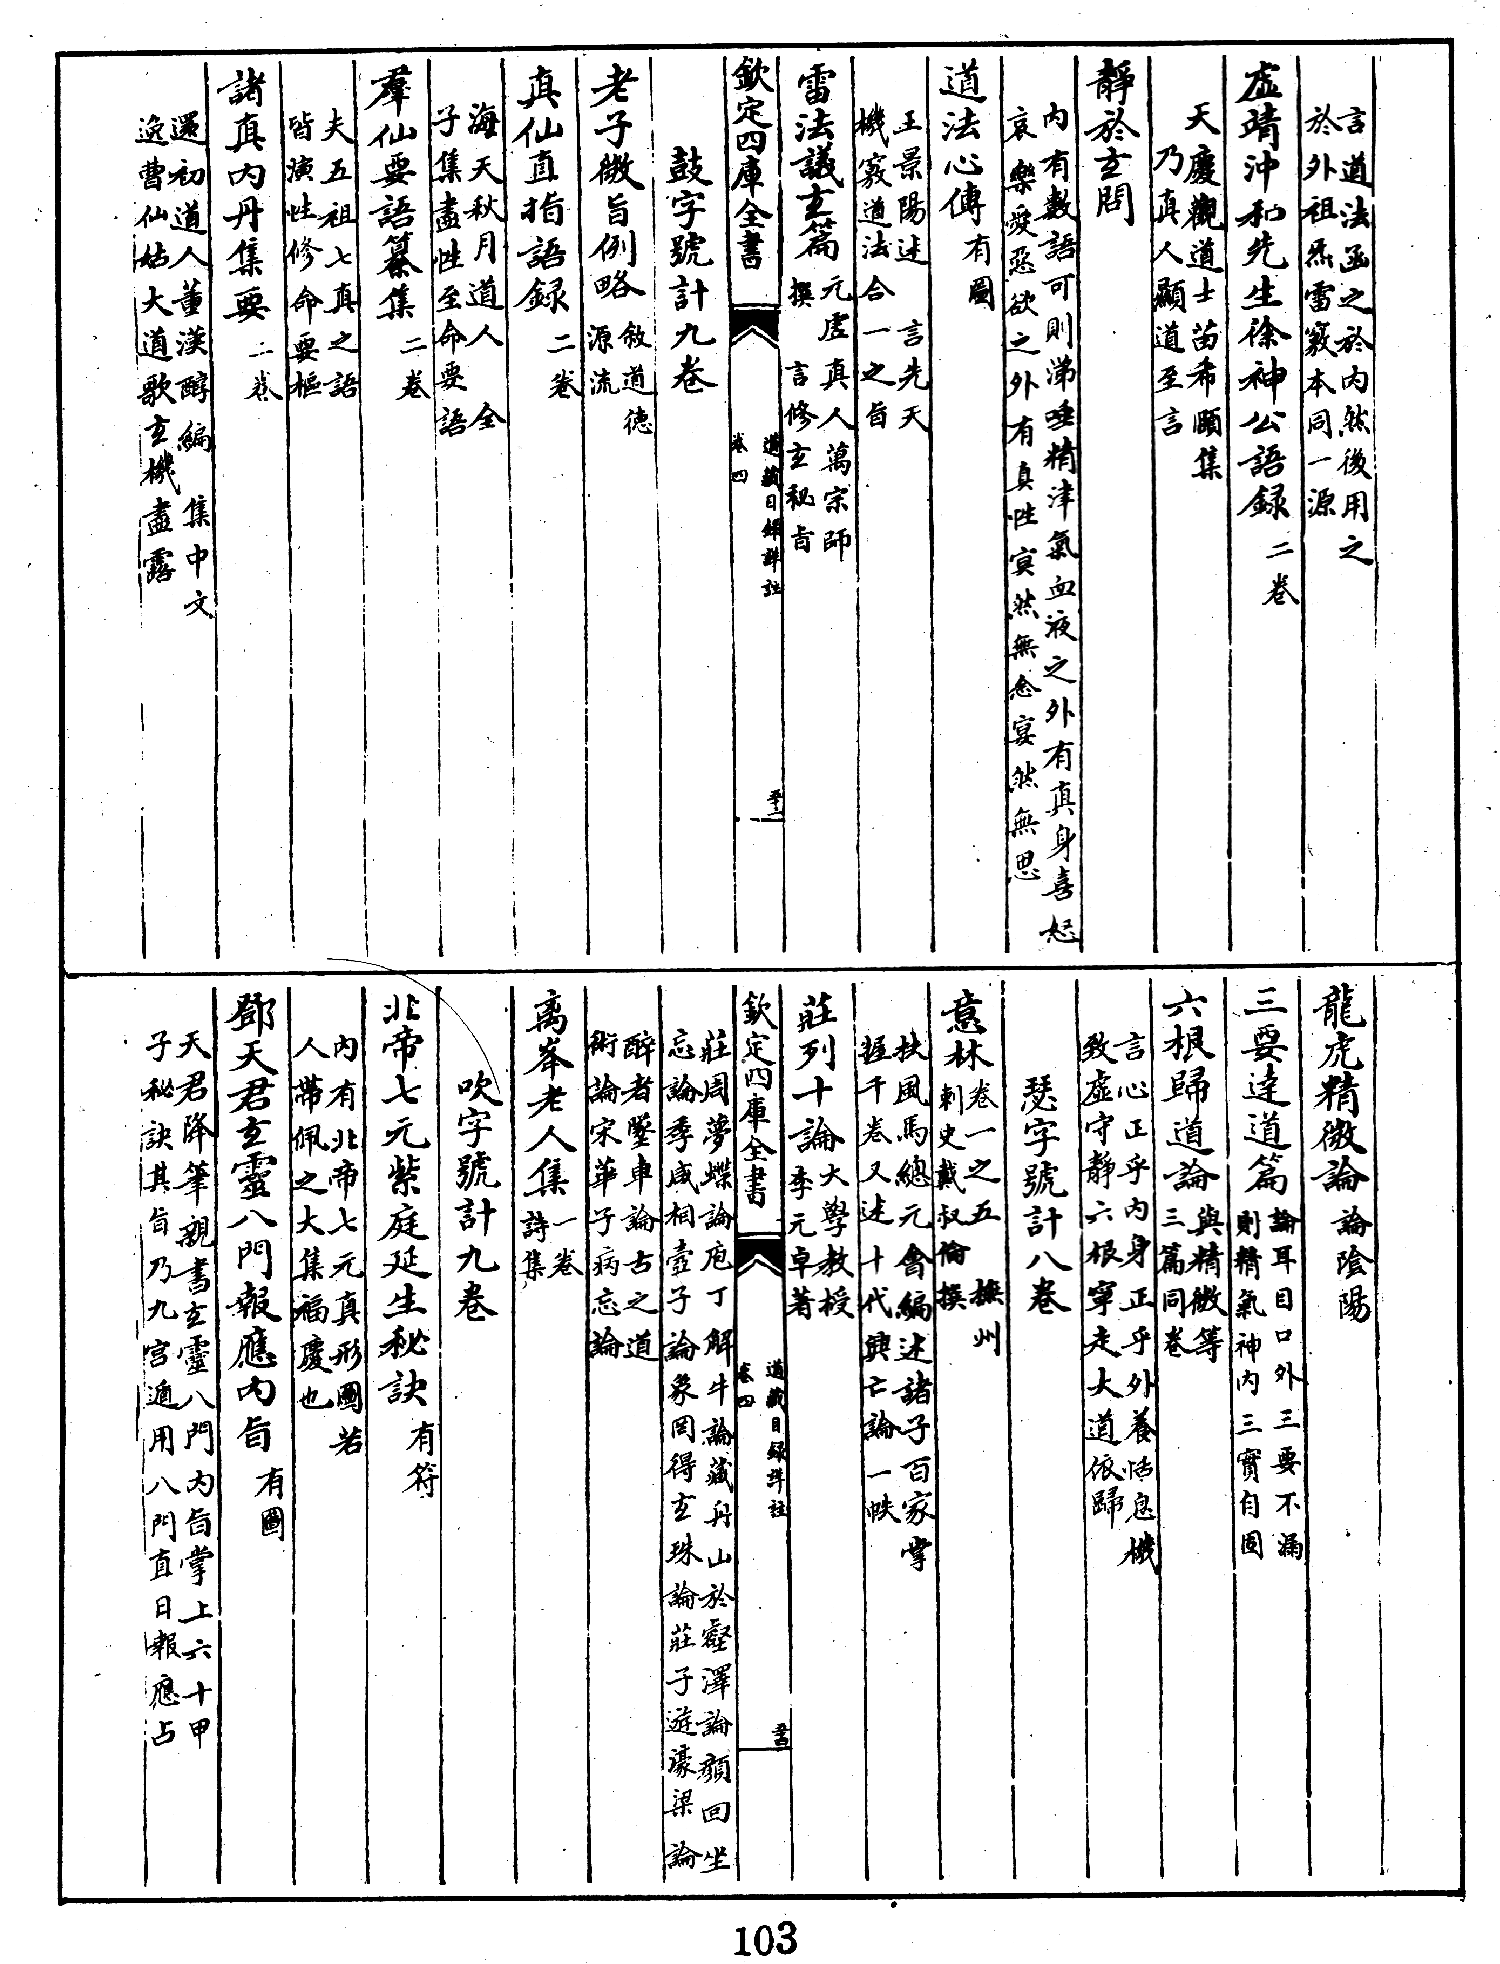 言道法函之於內然後用之
於外祖炁雷竅本同一源
虛靖沖和先生徐神公語録二卷
天慶觀道士苗希頤集
乃真人顯道至言
靜於玄問
内有數語可則涕唾精津氣血液之外有真身喜怒
哀樂愛惡欲之外有真性寞然無念寞然無思
道法心傳有圖
王景陽述 言先天
機竅道法合一之旨
雷法議玄篇元虛真人萬宗師
撰 言修玄秘旨
欽定四庫全書
道藏目録詳註
卷四
鼓字號計九卷
老子微旨例略敘道德
源流
真仙直指語録二卷
海天秋月道人 全
子集盡性至命要語
羣仙要語纂集二卷
夫五祖七真之語
皆演性修命要樞
諸真內丹集要二卷
還初道人董漢醇編 集中文
逸曹仙姑大道歌玄機盡露
龍虎精微論論陰陽
三要達道篇論耳目口外三要不漏
則精氣神內三寳自固
六根歸道論與精微等
三篇同卷
言心正乎內身正乎外養恬息機
致虛守靜六根寧走大道依歸
瑟字號計八卷
意林卷一之五 撫州
刺史戴叔倫撰
扶風馬總元會編述諸子百家掌
握千卷又述十代興亡論一帙
莊列十論大學教授
李元卓著
欽定四庫全書
道藏目録詳註
卷四
莊周夢蝶論庖丁解牛論藏丹山於壑澤論顏回坐
忘論季咸相壺子論象罔得玄珠論莊子遊濠梁論
醉者墜車論古之道
術論宋華子病忘論
离峯老人集一卷
詩集
吹字號計九卷
北帝七元紫庭延生秘訣有符
內有北帝七元真形圖若
人帶佩之大集福慶也
鄧天君玄靈八門報應內旨有圖
天君降筆親書玄靈八門內旨掌上六十甲
子秘訣其旨乃九宮通用八門直日報應占
103